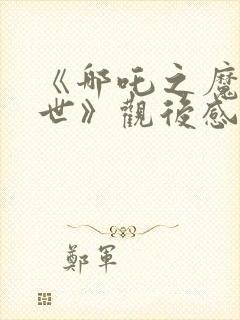 《哪吒之魔
世》觀後感
鄭軍